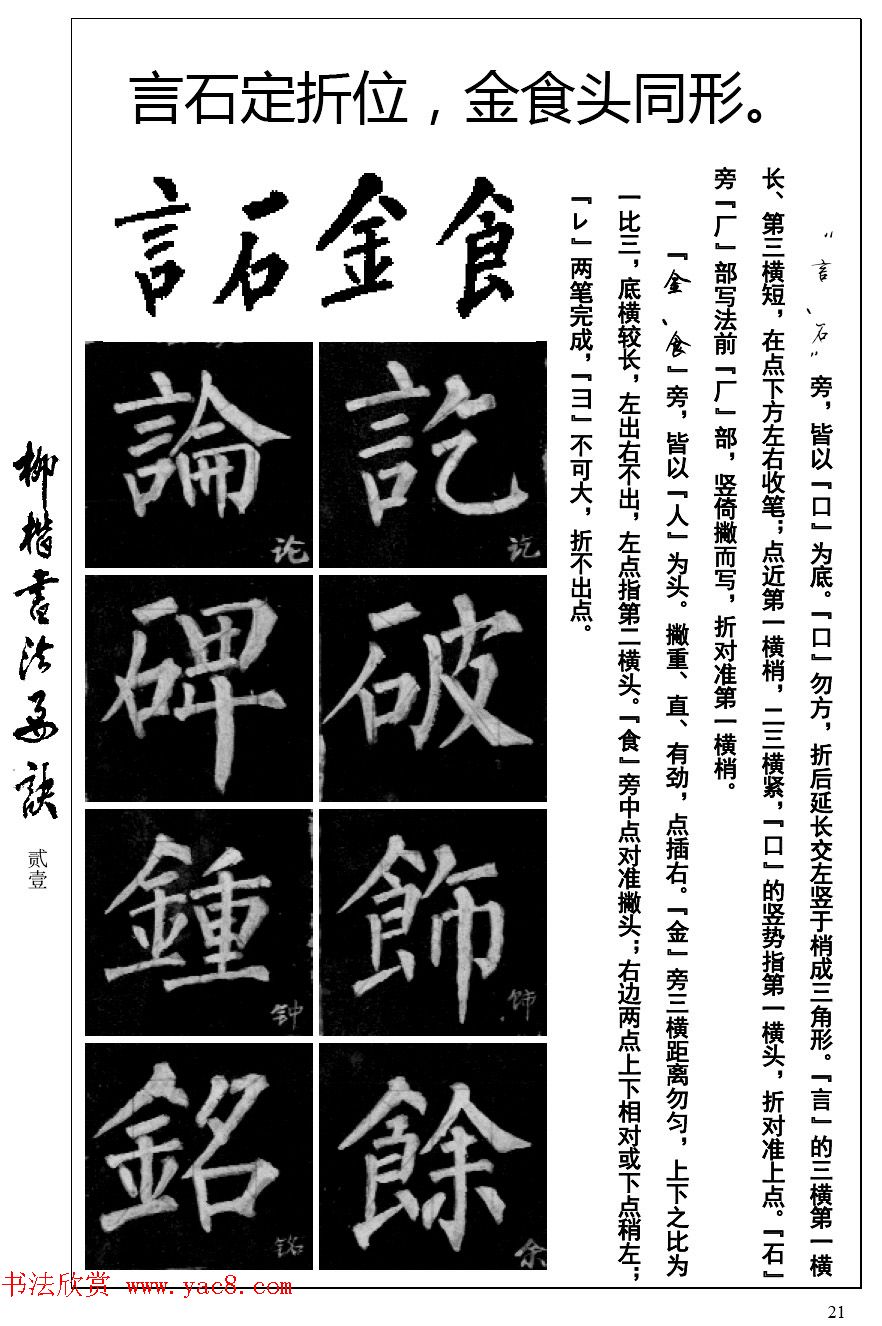 言石定折位，金食头同形。
言石金食
“言、石”旁，皆以『口』为底。『口』勿方，折后延长交左竖于梢成三角形。『言』的三横第一横
长、第三横短，在点下方左右收笔；点近第一横梢，二三横紧，『口』的竖势指第一横头，折对准上点。『石』
旁『厂』部写法前『厂』部，竖倚撇而写，折对准第一横梢。
『金、食』旁，皆以『人』为头。撇重、直、有劲，点插右。『金』旁三横距离勿匀，上下之比为
一比三，底横较长，左出右不出，左点指第二横头。『食』旁中点对准撇头；右边两点上下相对或下点稍左；
『レ』两笔完成，『彐』不可大，折不出点。
論
论
訖
讫
碑
破
鍾
钟
飾
饰
銘
铭
餘
余
柳楷书法要诀
贰壹
书法欣赏 www.yac8.com
21